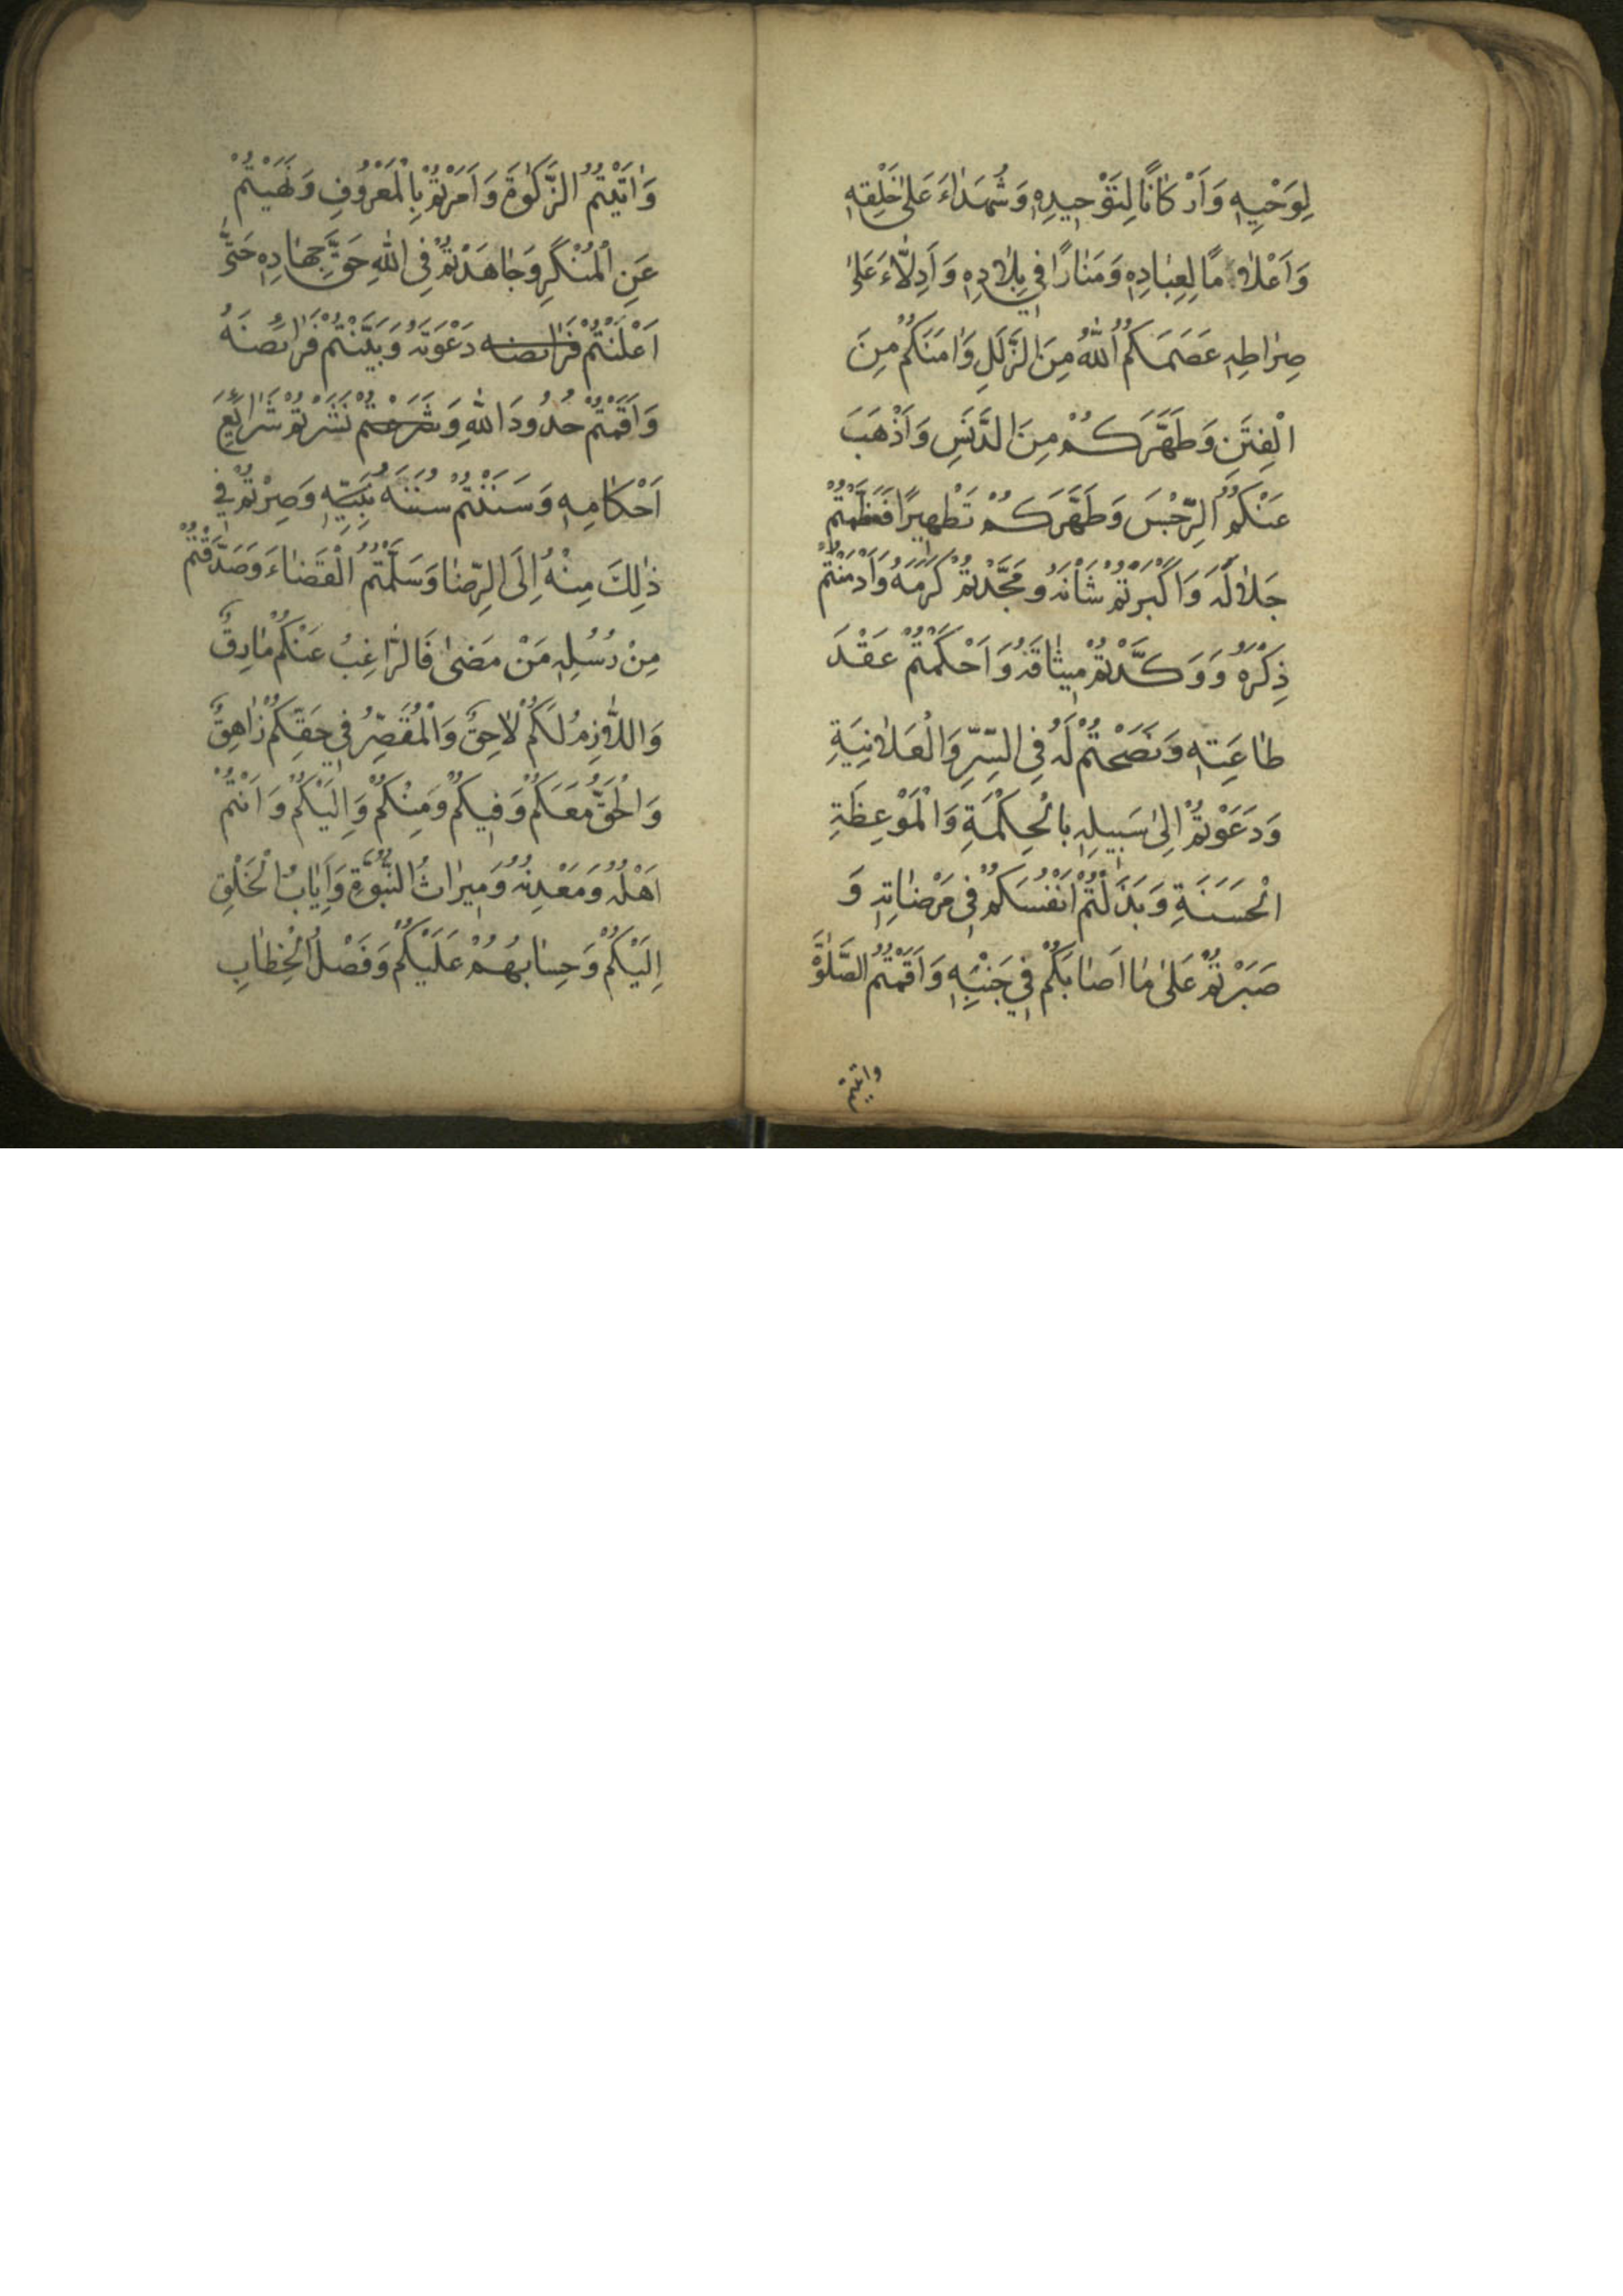 لِوَحْيِهِ وَاَرْكَانًا لِتَوْحِيدِهِ وَشُهَدَاءَ عَلٰى خَلْقِهِ
وَاَعْلَامًا لِعِبَادِهِ وَمَنَارًا فِي بِلَادِهِ وَاَدِلَّاءَ عَلٰى
صِرَاطِهِ عَصَمَكُمُ اللّٰهُ مِنَ الزَّلَلِ وَاٰمَنَكُمْ مِنَ
الْفِتَنِ وَطَهَّرَكُمْ مِنَ الدَّنَسِ وَاَذْهَبَ
عَنْكُمُ الرِّجْسَ وَطَهَّرَكُمْ تَطْهِيرًا فَعَظَّمْتُمْ
جَلَالَهُ وَاَكْبَرْتُمْ شَاْنَهُ وَمَجَّدْتُمْ كَرَمَهُ وَاَدْمَنْتُمْ
ذِكْرَهُ وَوَكَّدْتُمْ مِيثَاقَهُ وَاَحْكَمْتُمْ عَقْدَ
طَاعَتِهِ وَنَصَحْتُمْ لَهُ فِي السِّرِّ وَالْعَلَانِيَةِ
وَدَعَوْتُمْ اِلٰى سَبِيلِهِ بِالْحِكْمَةِ وَالْمَوْعِظَةِ
الْحَسَنَةِ وَبَذَلْتُمْ اَنْفُسَكُمْ فِي مَرْضَاتِهِ وَ
صَبَرْتُمْ عَلٰى مَا اَصَابَكُمْ فِي جَنْبِهِ وَاَقَمْتُمُ الصَّلٰوةَ
واتيتم
وَاٰتَيْتُمُ الزَّكٰوةَ وَاَمَرْتُمْ بِالْمَعْرُوفِ وَنَهَيْتُمْ
عَنِ الْمُنْكَرِ وَجَاهَدْتُمْ فِي اللّٰهِ حَقَّ جِهَادِهِ حَتّٰى
اَعْلَنْتُمْ فَرَائضه دَعْوَتَهُ وَبَيَّنْتُمْ فَرَائِضَهُ
وَاَقَمْتُمْ حُدُودَ اللّٰهِ وَشَرَعْتُمْ نَشَرْتُمْ شَرَائِعَ
اَحْكَامِهِ وَسَنَنْتُمْ سُنَّةَ نَبِيِّهِ وَصِرْتُمْ فِي
ذٰلِكَ مِنْهُ اِلَى الرِّضَا وَسَلَّمْتُمُ الْقَضَاءَ وَصَدَّقْتُمْ
مِنْ رُسُلِهِ مَنْ مَضٰى فَالرَّاغِبُ عَنْكُمْ مَارِقٌ
وَاللَّازِمُ لَكُمْ لَاحِقٌ وَالْمُقَصِّرُ فِي حَقِّكُمْ زَاهِقٌ
وَالْحَقُّ مَعَكُمْ وَفِيكُمْ وَمِنْكُمْ وَاِلَيْكُمْ وَاَنْتُمْ
اَهْلُهُ وَمَعْدِنُهُ وَمِيرَاثُ النُّبُوَّةِ وَاِيَابُ الْخَلْقِ
اِلَيْكُمْ وَحِسَابُهُمْ عَلَيْكُمْ وَفَصْلُ الْخِطَابِ